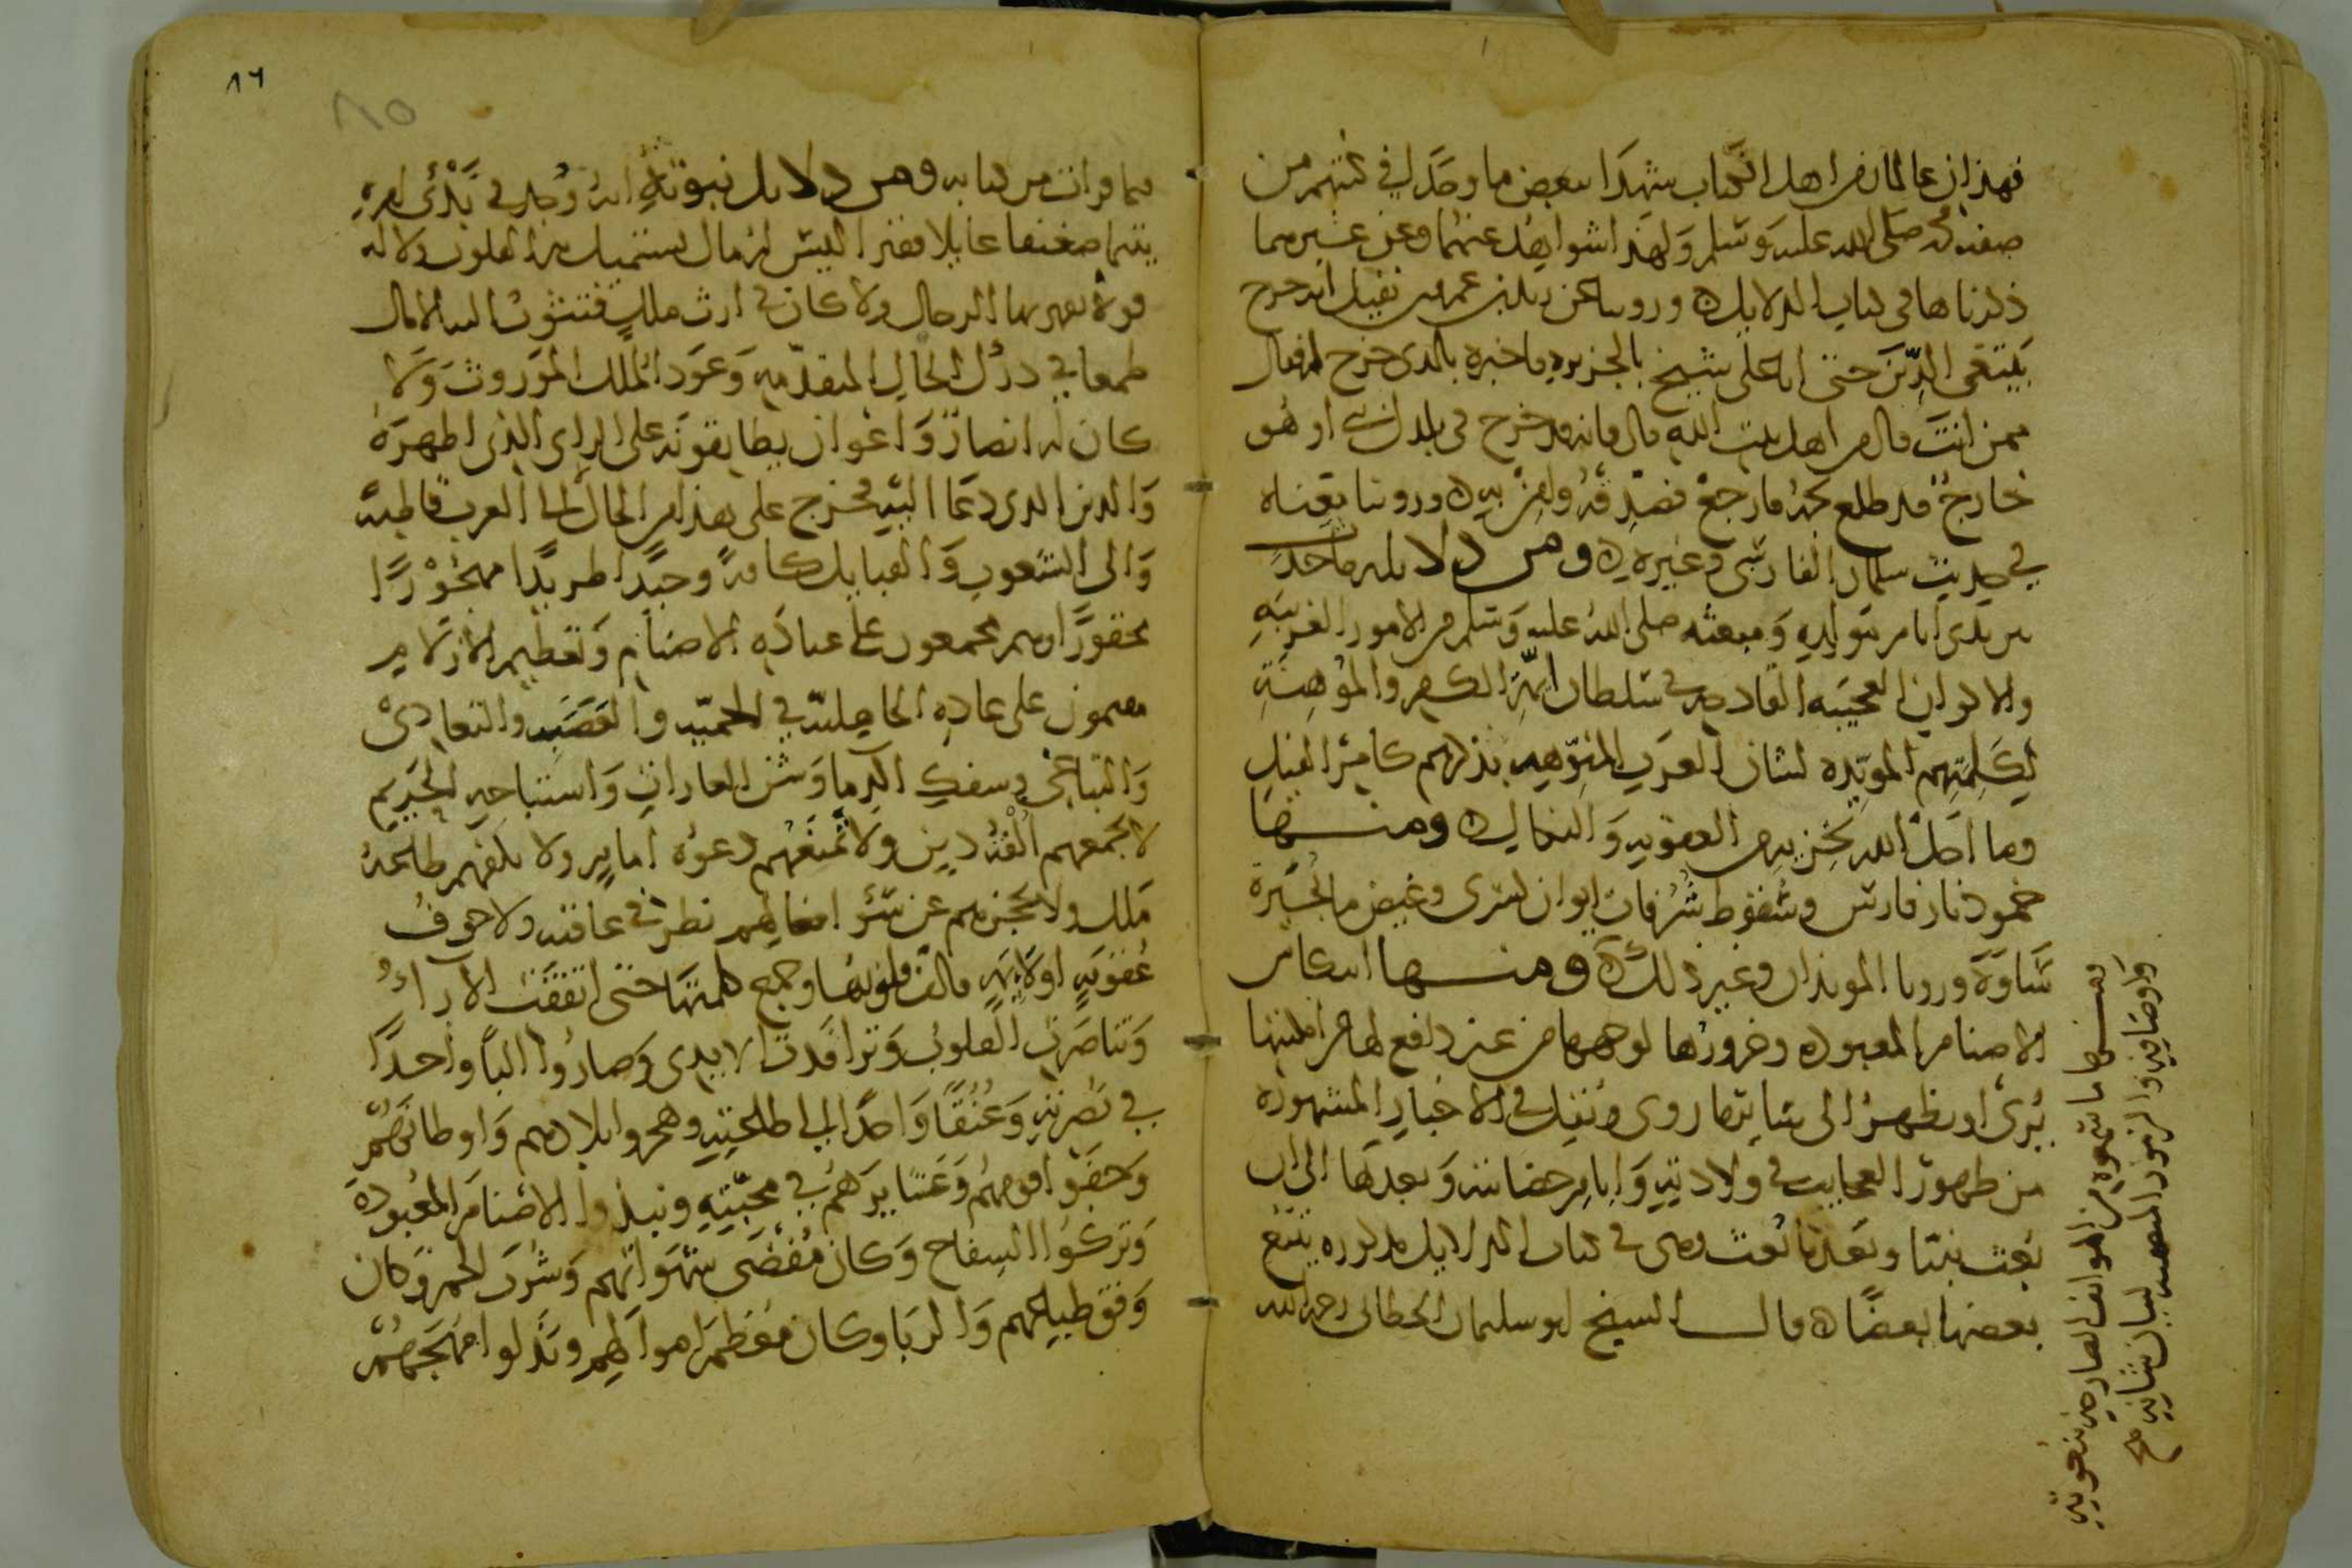 فهذان عالمان من اهل الكتاب شهدا ببعض ما وجدا في كتبهم من
صفة محمد صلى الله عليه وسلم ولهذا شواهد عنهما وعن غيرهما
ذكرناها في كتاب الدلايل وروينا عن زيد بن عمرو بن نفيل انه خرج
يبتغي الدين حتى اتى على شيخ بالجزيرة فاخبره بالذي خرج له فقال
ممن انت قال من اهل بيت الله قال فانه قد خرج في بلدك نبي او هو
خارج قد طلع نجمه فارجع فصدقه وامن به وروينا بعضه
في حديث سلمان الفارسي وغيره ومن دلايله ما حدث
بين يدي ايام مولده ومبعثه صلى الله عليه وسلم من الامور الغريبة
والاكوان العجيبة القادحة في سلطان ايمة الكفر والموهنة
لكلمتهم المويدة لشان العرب المنوهة بذكرهم كامر الفيل
وما احل الله بحزبه من العقوبة والنكال ومنها
خمود نار فارس وسقوط شرفات ايوان كسرى وغيض ما بحيرة
ساوة ورويا الموبذان وغير ذلك ومنها انتكاس
الاصنام المعبودة وخرورها لوجهها من غير دافع لها من امكنتها
يرى او يظهر الى سائر ما روي ونقل في الاخبار المشهورة
من ظهور العجايب في ولادته وايام حضانته وبعدها الى ان
بعث نبيا وبعد ما بعث وهي في كتاب الدلايل مذكورة يتبع
بعضها بعضا قال الشيخ ابو سليمان الخطابي رحمه الله
ومنها ما سمعوه من الهواتف الصارخة بنعوته
واوصافه والرموز المضمنة لبيان شانه صح
٨٦
٨٥
فيما قرات من كتابه ومن دلايل نبوته انه وجد في بدئ امره
يتيما ضعيفا عايلا فقيرا ليس له مال يستميل به القلوب ولا له
قوة يقهر بها الرجال ولا كان في ارث ملك فتثوب اليه الامال
طمعا في درك الحال المتقدمة وعود الملك الموروث ولا
كان له انصار واعوان يطابقونه على الراي الذي اظهره
والدين الذي دعا اليه فخرج على هذه الحال الى العرب قاطبة
والى الشعوب والقبايل كافة وحيدا طريدا مهجورا
محقورا وهم مجمعون على عبادة الاصنام وتعظيم الازلام
مقيمون على عادة الجاهلية في الحمية والعصبية والتعادي
والتباغي وسفك الدما وشن الغارات واستباحة الحريم
لا يجمعهم الفة دين ولا تمنعهم دعوة امام ولا يكفهم طاعة
ملك ولا يحجزهم عن سوء افعالهم نظر في عاقبة ولا خوف
عقوبة او لائمة فالف قلوبها وجمع كلمتها حتى اتفقت الاراء
وتناصرت القلوب وترافدت الايدي وصاروا البا واحدا
في نصرته وعنقا واحدا الى طلعته وهجروا بلادهم واوطانهم
وجفوا قومهم وعشايرهم في محبته ونبذوا الاصنام المعبودة
وتركوا السفاح وكان مقضى شهواتهم وشرب الخمر وكان
وفق طباعهم والربا وكان معظم اموالهم وبذلوا مهجهم